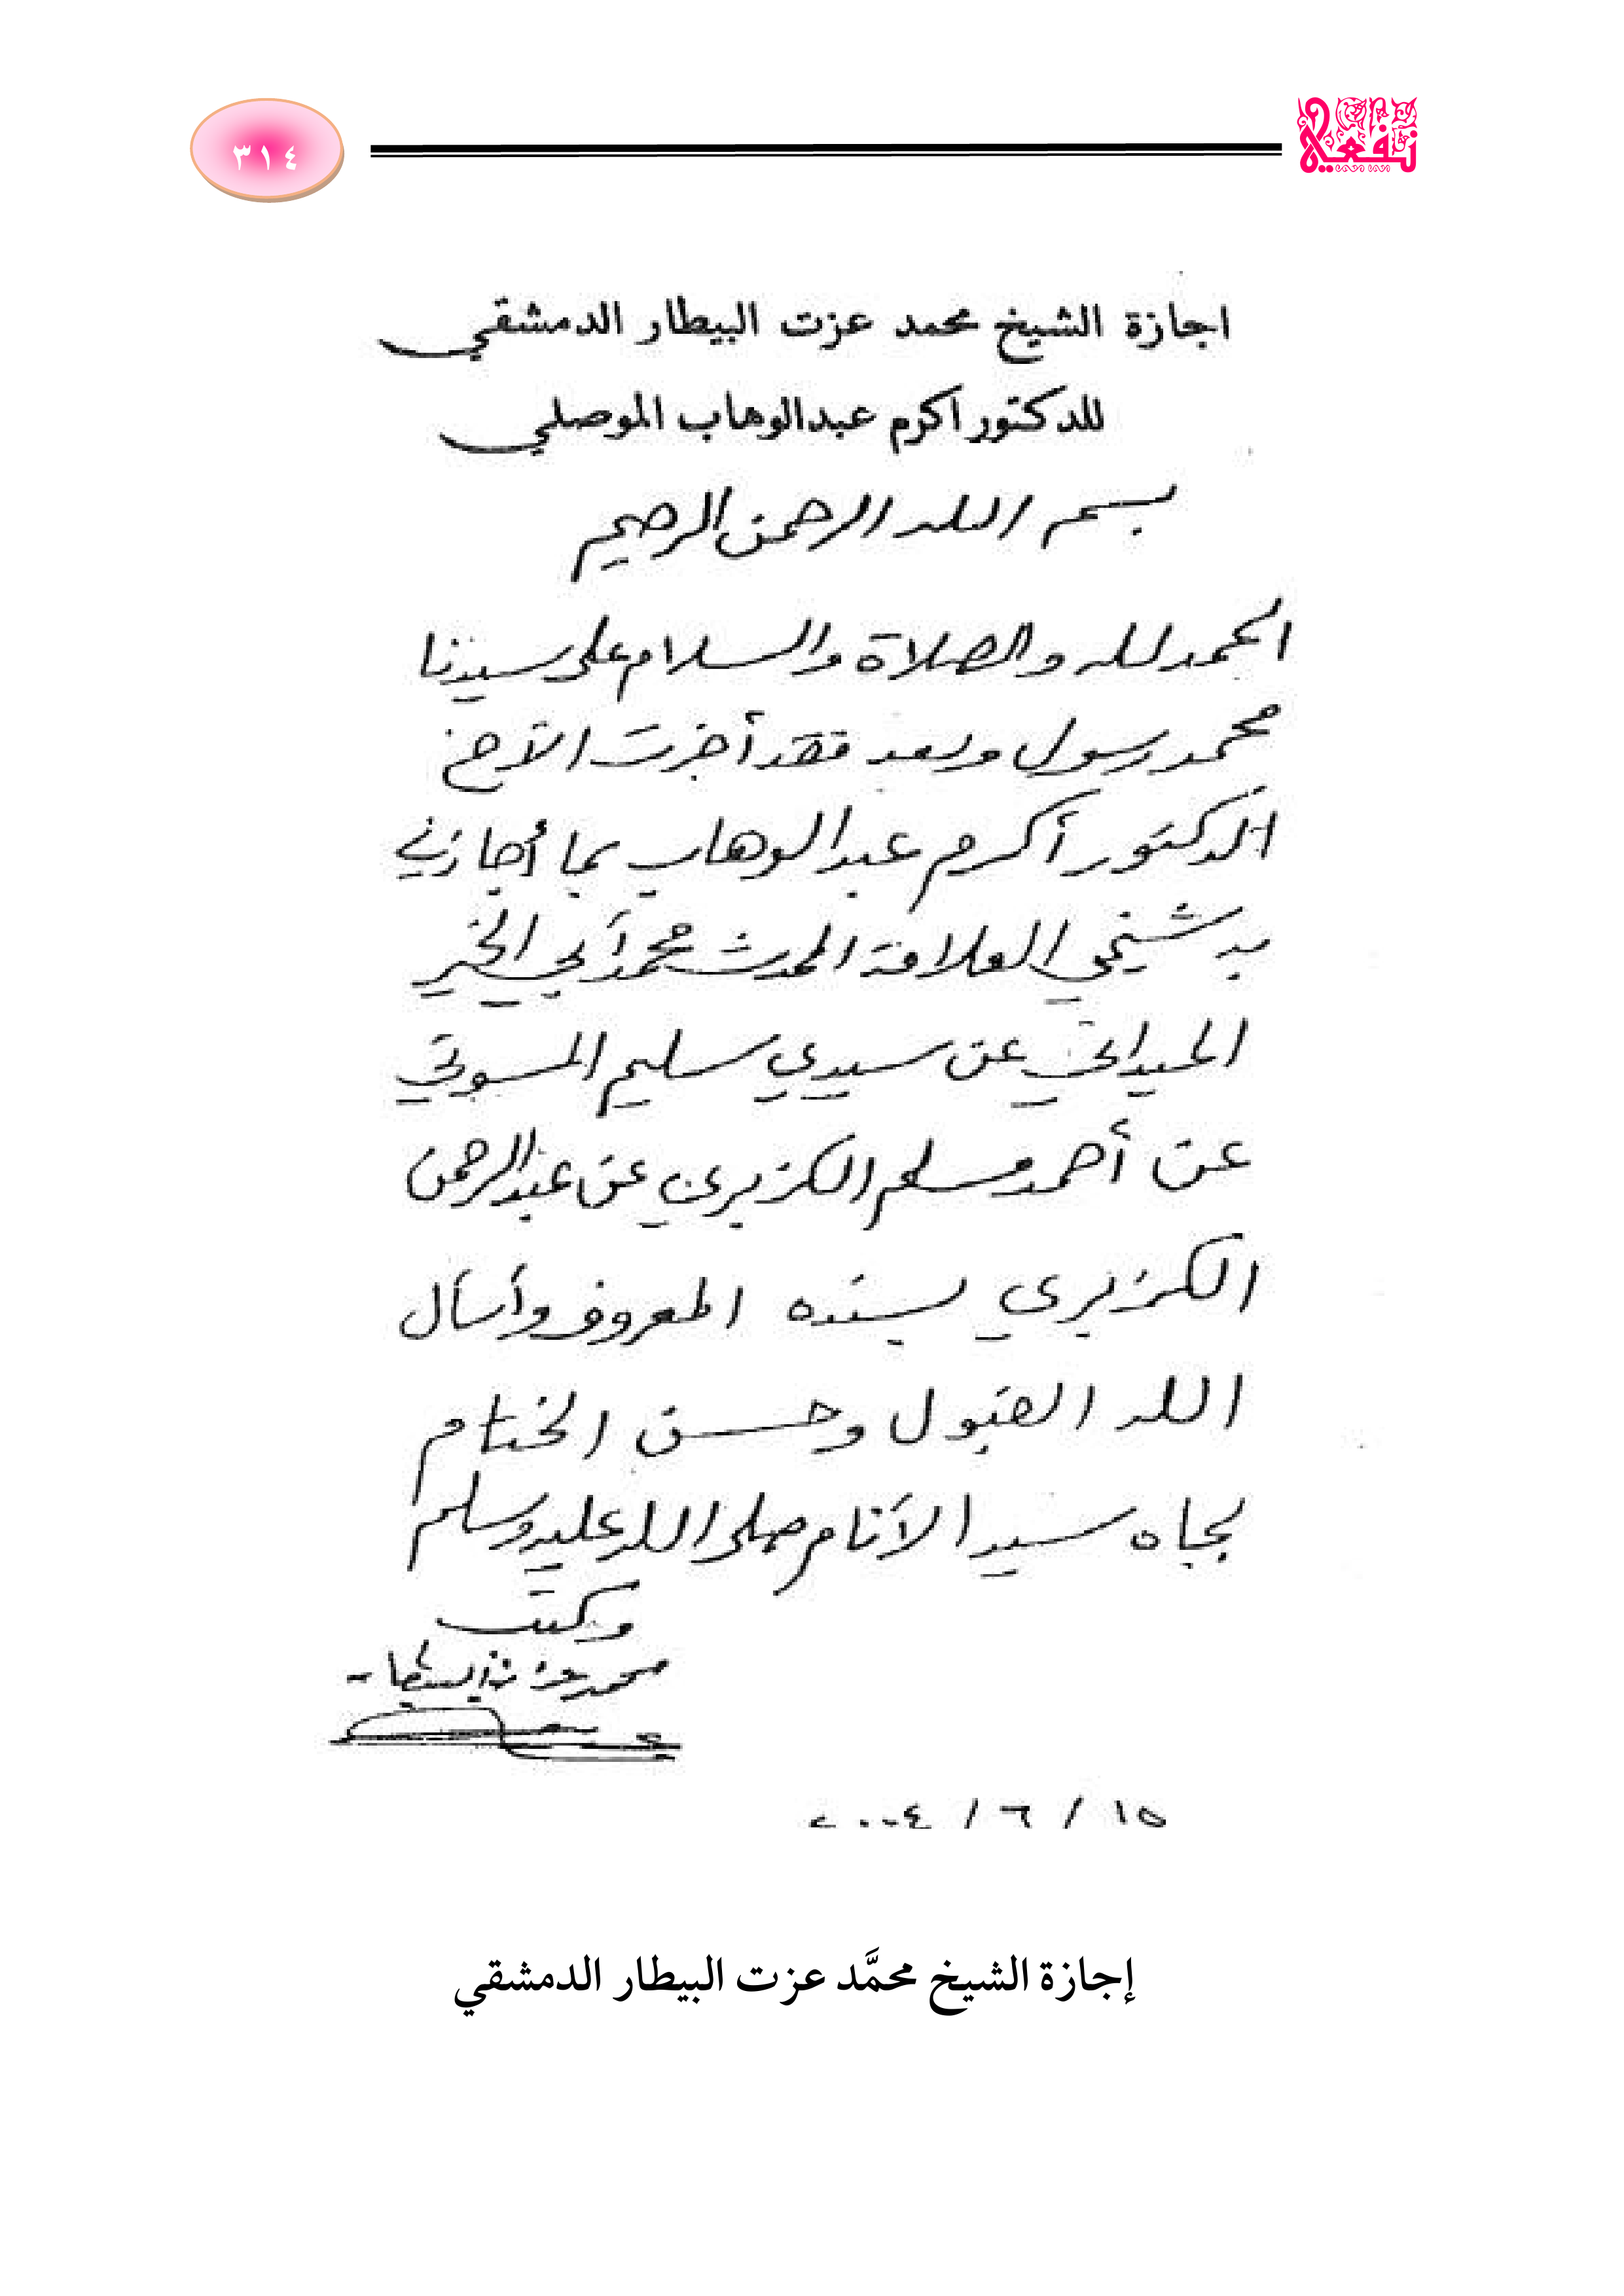 ٣١٤
اجازة الشيخ محمد عزت البيطار الدمشقي
للدكتور اكرم عبدالوهاب الموصلي
بسم الله الرحمن الرحيم
الحمد لله والصلاة والسلام على سيدنا
محمد رسول وبعد فقد أجزت الأخ
الدكتور أكرم عبد الوهاب بما أجازني
به شيخي العلامة المحدث محمد أبي الخير
الميداني عن سيدي سليم المسوتي
عن أحمد مسلم الكزبري عن عبد الرحمن
الكزبري بسنده المعروف وأسأل
الله القبول وحسن الختام
بجاه سيد الأنام صلى الله عليه وسلم
وكتب
محمد عزت البيطار
١٥ / ٦ / ٢٠٠٤
إجازة الشيخ محمَّد عزت البيطار الدمشقي